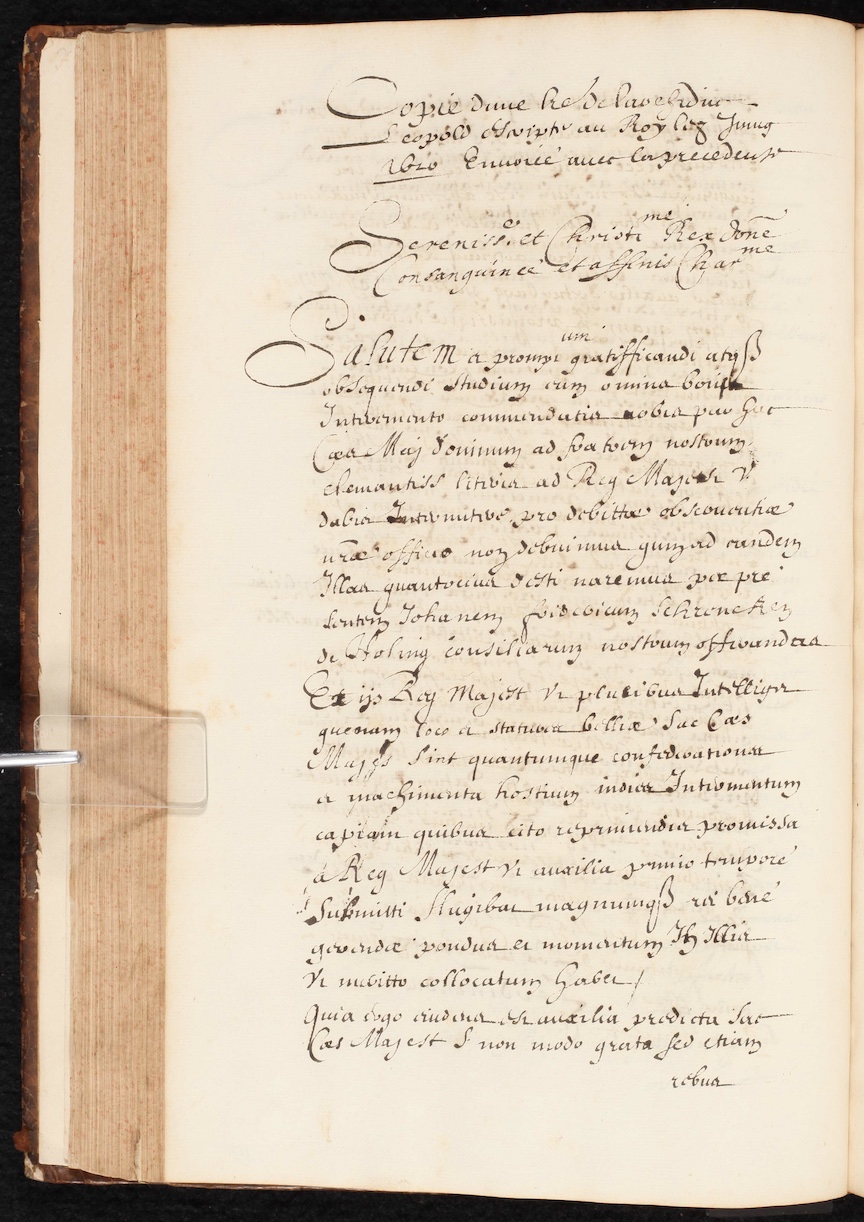 Copie dune lre de larchiduc
Leopold escripte au Roy le 8 Juing
1610 Envoiée avec la precedente
Sereniss.e et Christi me Rex Dōne
Consanguinee et affinis Char me
Salutem a prompt um gratifficandi atqß
obsequendi studium cum omina boni
Intervenerito commendatia nobia per hoc
Cæa Maj dominum ad fratrem nostrum
clemantiss litteria ad Reg Majest V
dabia Intermitive pro debittæ observentiæ
nræ officio non debuimua quin ad eandem
Illaa quantociua desti naremua per præ
sentem Johanem fridericum Schrenchen
de Noting consiliarium nostrum offerandaa
Ex ijs Reg Majest Vr pluribua Intelliget
quenam loco a statuea belliæ Sac Cæs
Majes sint quantumque confederationea
a machimenta hostium india Intromentum
capiam quibua cito reprimendia promissa
à Reg Majest Vr auxilia primo tempore
submitti flagibat magnumqß rei bene
gerendæ pondua et momentum In Illia
Vr mebitto collocatum habet /
Quia ergo eiudena est auxilia predicta Sac
Cæs Majest S non modo grata sed etiam
rebua